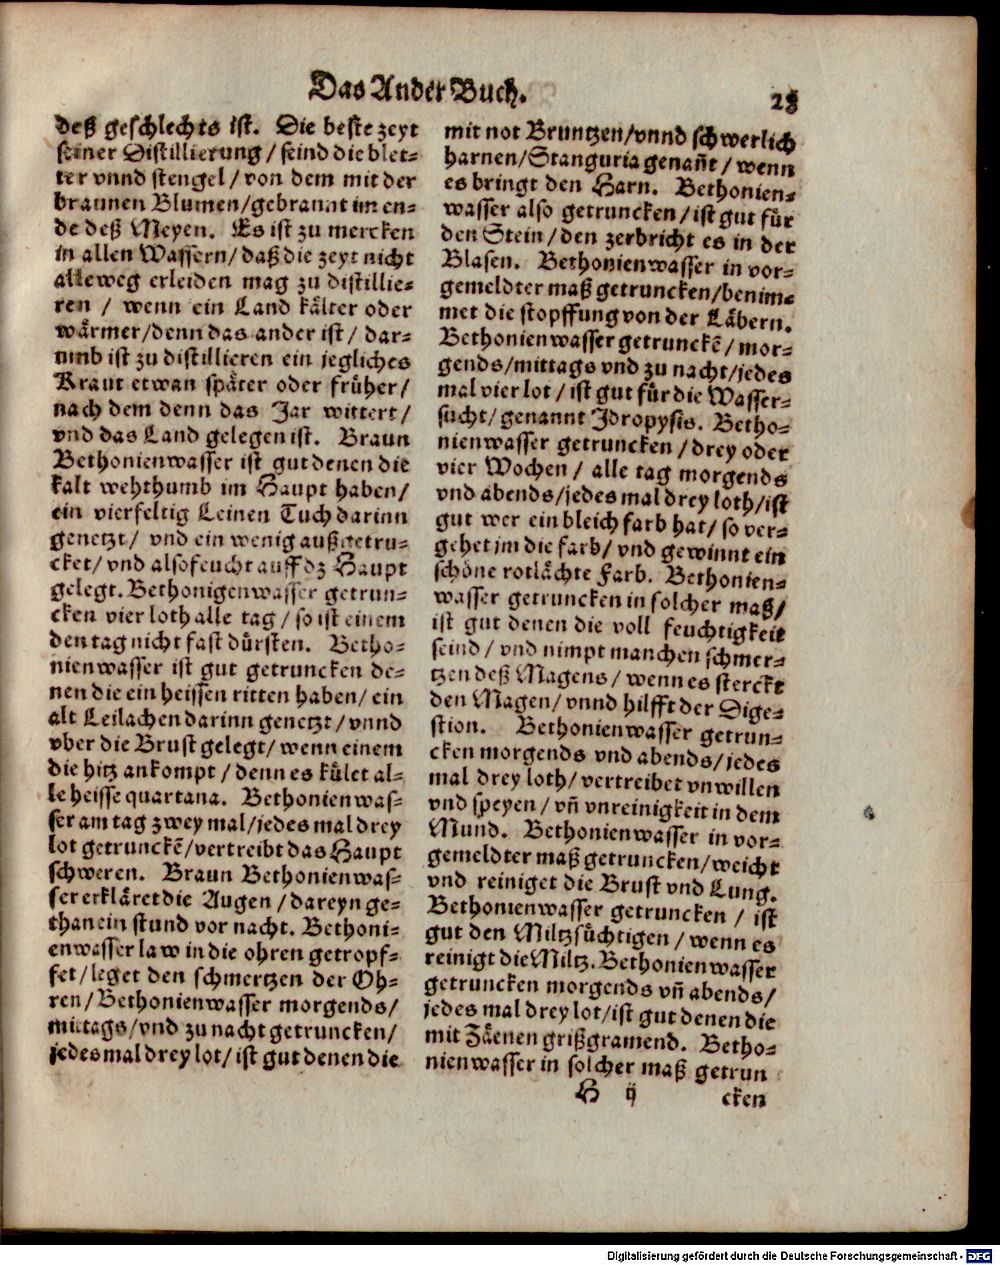 Das Ander Buch.
28
deß geschlechts ist. Die beste zeyt
seiner Distillierung / seind die blet⸗
ter vnnd stengel / von dem mit der
braunen Blumen / gebrannt im en⸗
de deß Meyen. Es ist zu mercken
in allen Wassern / daß die zeyt nicht
alleweg erleiden mag zu distillie⸗
ren / wenn ein Land kälter oder
wärmer / denn das ander ist / dar⸗
umb ist zu distillieren ein jegliches
Kraut etwan später oder früher /
nach dem denn das Jar wittert /
vnd das Land gelegen ist. Braun
Bethonienwasser ist gut denen die
kalt wehthumb im Haupt haben /
ein vierfeltig Leinen Tuch darinn
genetzt / vnd ein wenig außgetru⸗
cket / vnd also feucht auff dz Haupt
gelegt. Bethonigenwasser getrun⸗
cken vier loth alle tag / so ist einem
den tag nicht fast dürsten. Betho⸗
nienwasser ist gut getruncken de⸗
nen die ein heissen ritten haben / ein
alt Leilachen darinn genetzt / vnnd
vber die Brust gelegt / wenn einem
die hitz ankompt / denn es kület al⸗
le heisse quartana. Bethonienwas⸗
ser am tag zwey mal / jedes mal drey
lot getrunckẽ / vertreibt das Haupt
schweren. Braun Bethonienwas⸗
ser erkläret die Augen / dareyn ge⸗
than ein stund vor nacht. Bethoni⸗
enwasser law in die ohren getropf⸗
fet / leget den schmertzen der Oh⸗
ren / Bethonienwasser morgends /
mittags / vnd zu nacht getruncken /
jedes mal drey lot / ist gut denen die
mit not Bruntzen / vnnd schwerlich
harnen / Stanguria genañt / wenn
es bringt den Harn. Bethonien⸗
wasser also getruncken / ist gut für
den Stein / den zerbricht es in der
Blasen. Bethonienwasser in vor⸗
gemeldter maß getruncken / benim⸗
met die stopffung von der Läbern.
Bethonienwasser getrunckẽ / mor⸗
gends / mittags vnd zu nacht / jedes
mal vier lot / ist gut für die Wasser⸗
sucht / genannt Jdropysis. Betho⸗
nienwasser getruncken / drey oder
vier Wochen / alle tag morgends
vnd abends / jedes mal drey loth / ist
gut wer ein bleich farb hat / so ver⸗
gehet jm die farb / vnd gewinnt ein
schöne rotlächte Farb. Bethonien⸗
wasser getruncken in solcher maß /
ist gut denen die voll feuchtigkeit
seind / vnd nimpt manchen schmer⸗
tzen deß Magens / wenn es sterckt
den Magen / vnnd hilfft der Dige⸗
stion. Bethonienwasser getrun⸗
cken morgends vnd abends / jedes
mal drey loth / vertreibet vnwillen
vnd speyen / vñ vnreinigkeit in dem
Mund. Bethonienwasser in vor⸗
gemeldter maß getruncken / weicht
vnd reiniget die Brust vnd Lung.
Bethonienwasser getruncken / ist
gut den Miltzsüchtigen / wenn es
reinigt die Miltz. Bethonienwasser
getruncken morgends vñ abends /
jedes mal drey lot / ist gut denen die
mit Zäenen grißgramend. Betho⸗
nienwasser in solcher maß getrun
H ij
cken
Digitalisierung gefördert durch die Deutsche Forschungsgemeinschaft - DFG